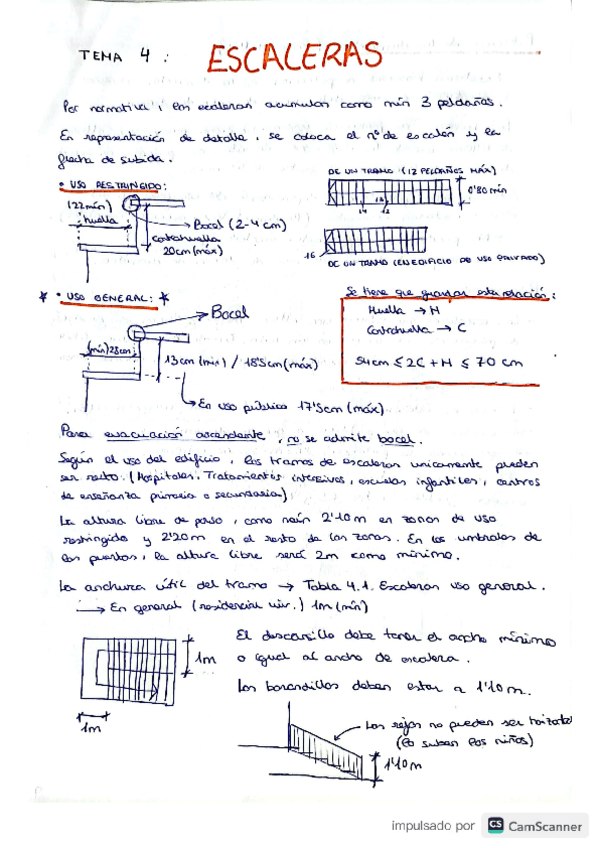 TEMA 4 : ESCALERAS
Por normativa, las escaleras acumulan como mín 3 peldaños.
En representación de detalle, se coloca el nº de escalón y la
flecha de subida.
• USO RESTRINGIDO:
DE UN TRAMO (12 PELDAÑOS MÁX)
(22mín)
huella
Bocel (2-4 cm)
contrahuella
20cm (máx)
0'80 mín
13
14 12
16
DE UN TRAMO (EN EDIFICIO DE USO PRIVADO)
* • USO GENERAL: *
Se tiene que guardar esta relación:
Bocel
Huella → H
Contrahuella → C
54cm ≤ 2C + H ≤ 70 cm
(mín) 28cm
13cm (min) / 18'5cm (máx)
En uso público 17'5cm (máx)
Para evacuación ascendente, no se admite bocel.
Según el uso del edificio, los tramos de escaleras unicamente pueden
ser recto. (Hospitales, Tratamientos intensivos, escuelas infantiles, centros
de enseñanza primaria o secundaria)
La altura libre de paso, como mín 2'10m en zonas de uso
restringido y 2'20m en el resto de las zonas. En los umbrales de
las puertas, la altura libre será 2m como mínimo.
La anchura útil del tramo → Tabla 4.1. Escaleras uso general.
→ En general (residencial viv.) 1m (mín)
1m
1m
El descansillo debe tener el ancho mínimo
o igual al ancho de escalera.
Las barandillas deben estar a 1'10m.
Las rejas no pueden ser horizotal
(lo suben los niños)
1'10m
impulsado por CS CamScanner